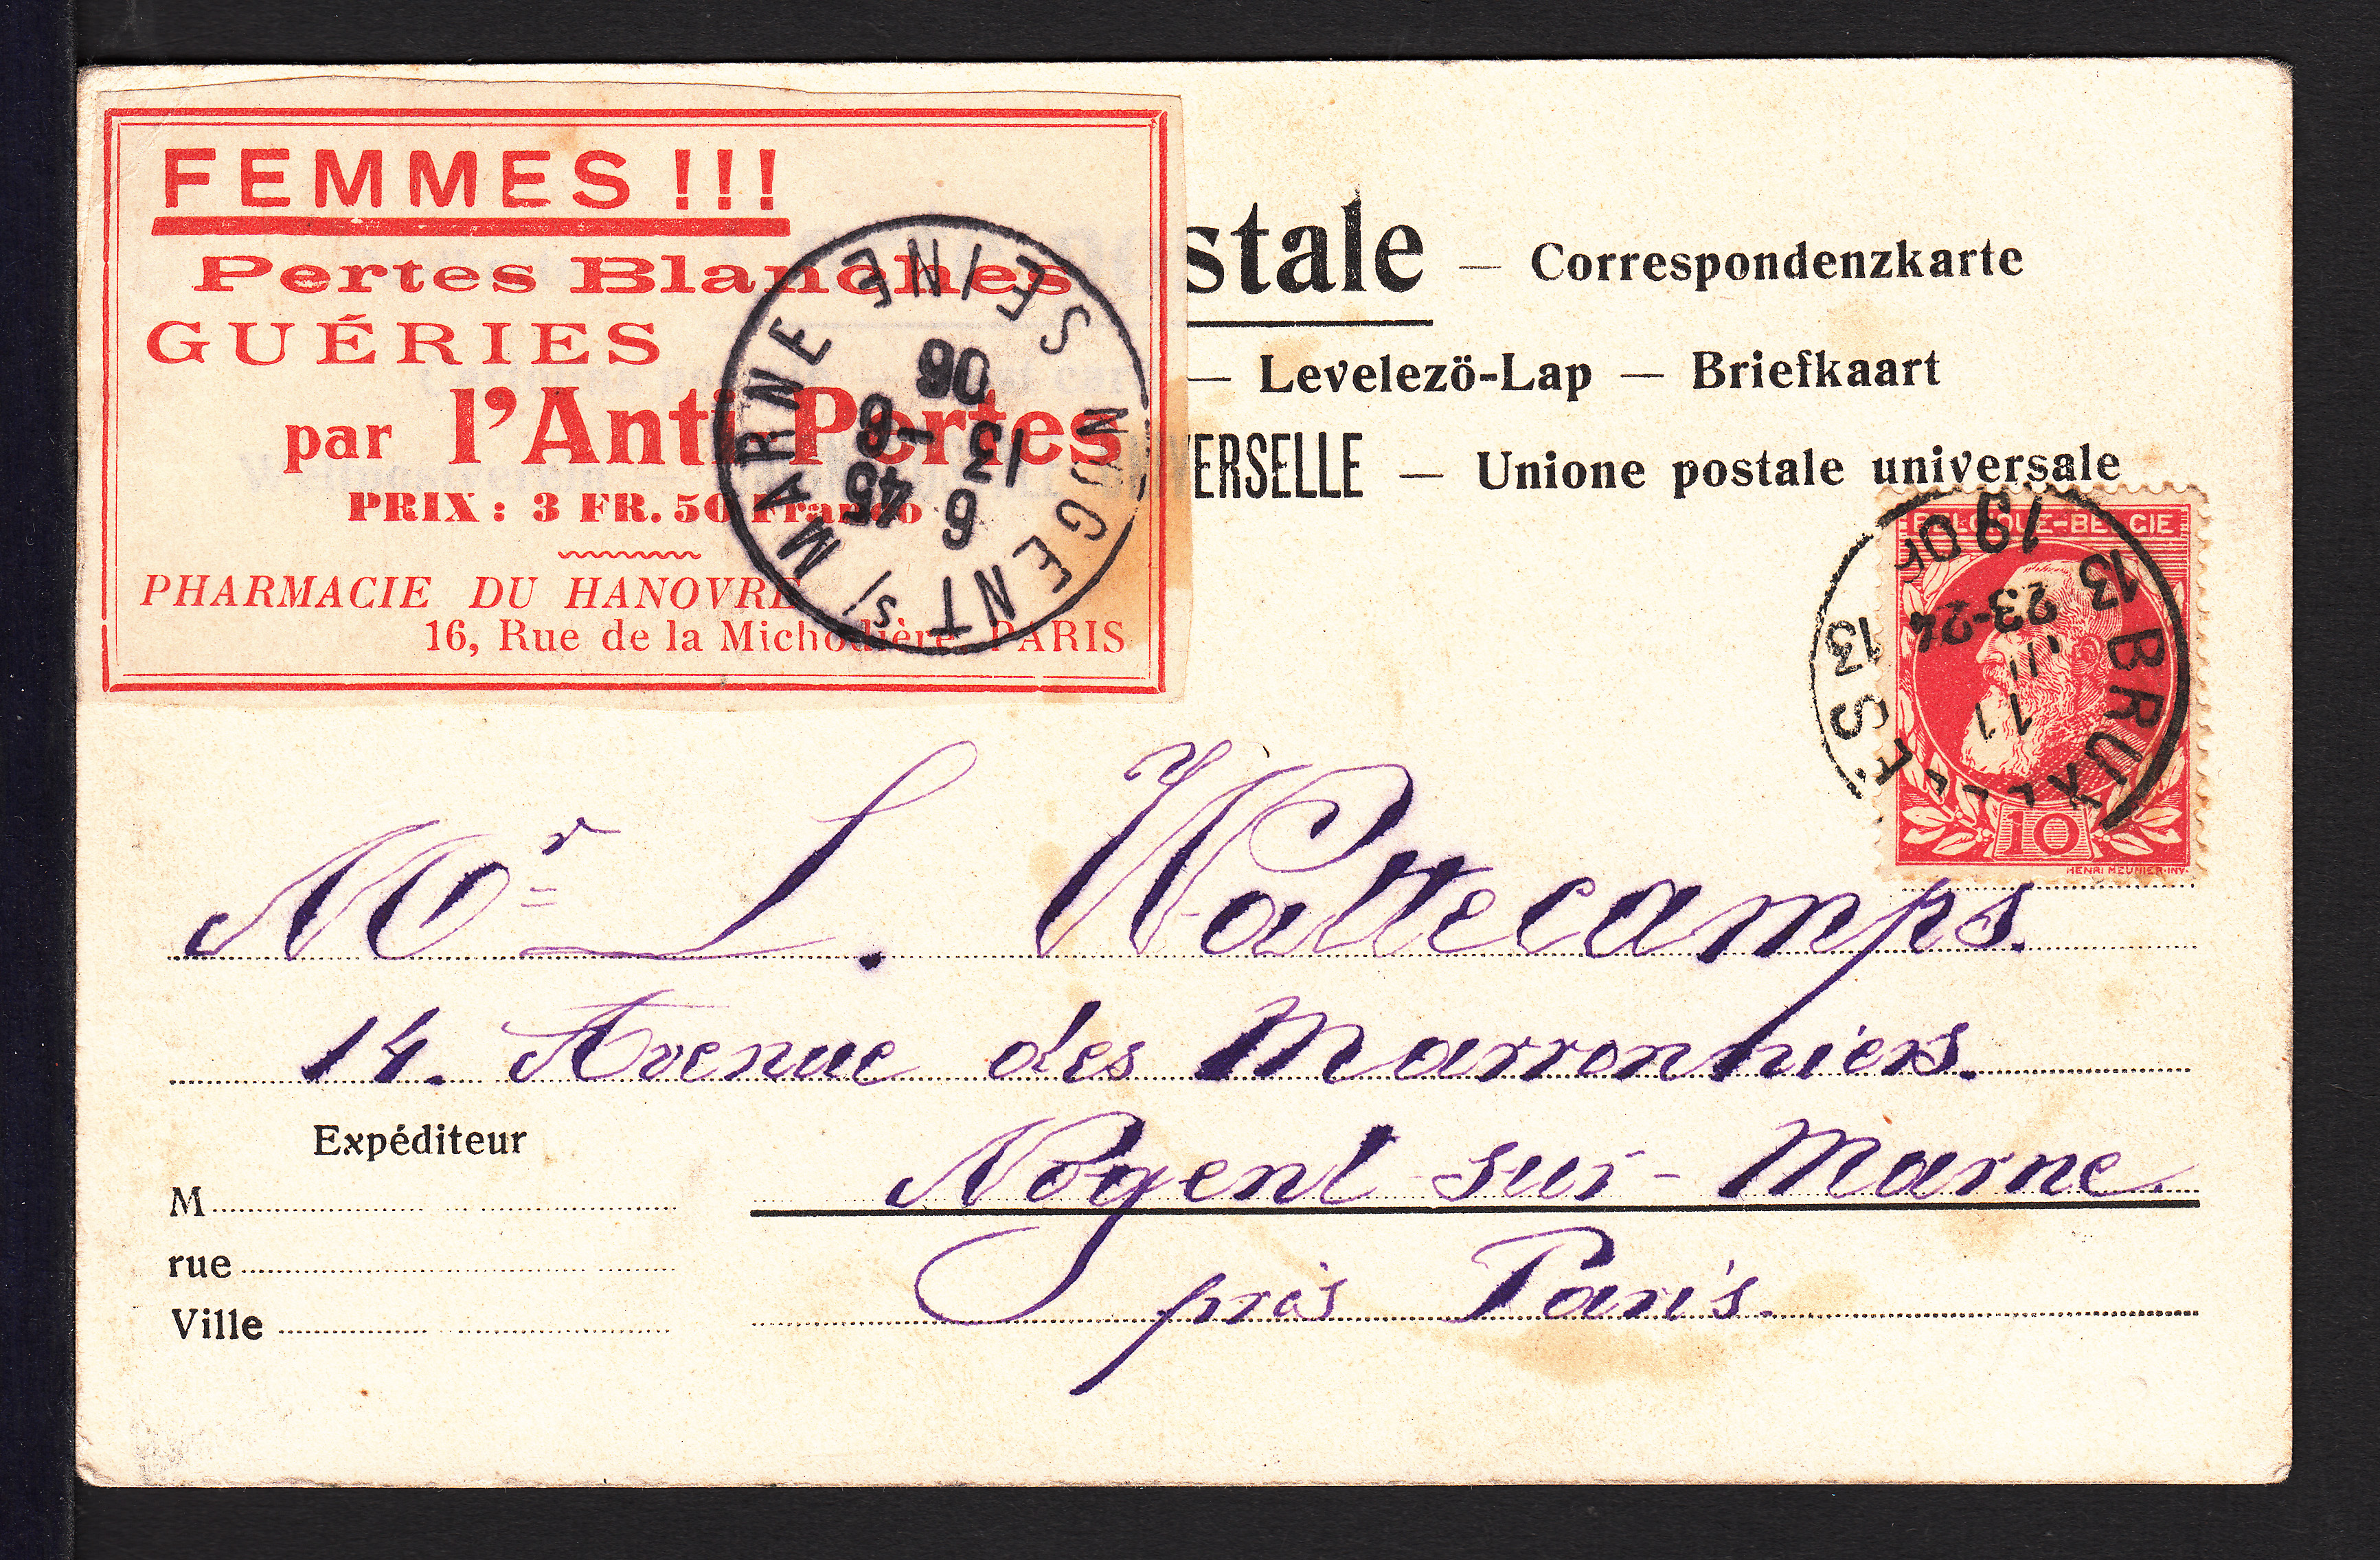 FEMMES !!!
Pertes Blanches
GUÉRIES
par l'Anti Pertes
PRIX : 3 FR. 50 Franco
PHARMACIE DU HANOVRE
16, Rue de la Michodière PARIS
NOGENT S/ MARNE SEINE
6 45
13 -6
06
stale — Correspondenzkarte
— Levelezö-Lap — Briefkaart
ERSELLE — Unione postale universale
BELGIQUE-BELGIE
10
HENRI MEUNIER·INV·
BRUXELLES
13 13
11
III
23-24
Mr L. Wattecamps.
14. Avenue des Marronniers.
Nogent-sur-Marne.
près Paris.
Expéditeur
M
rue
Ville